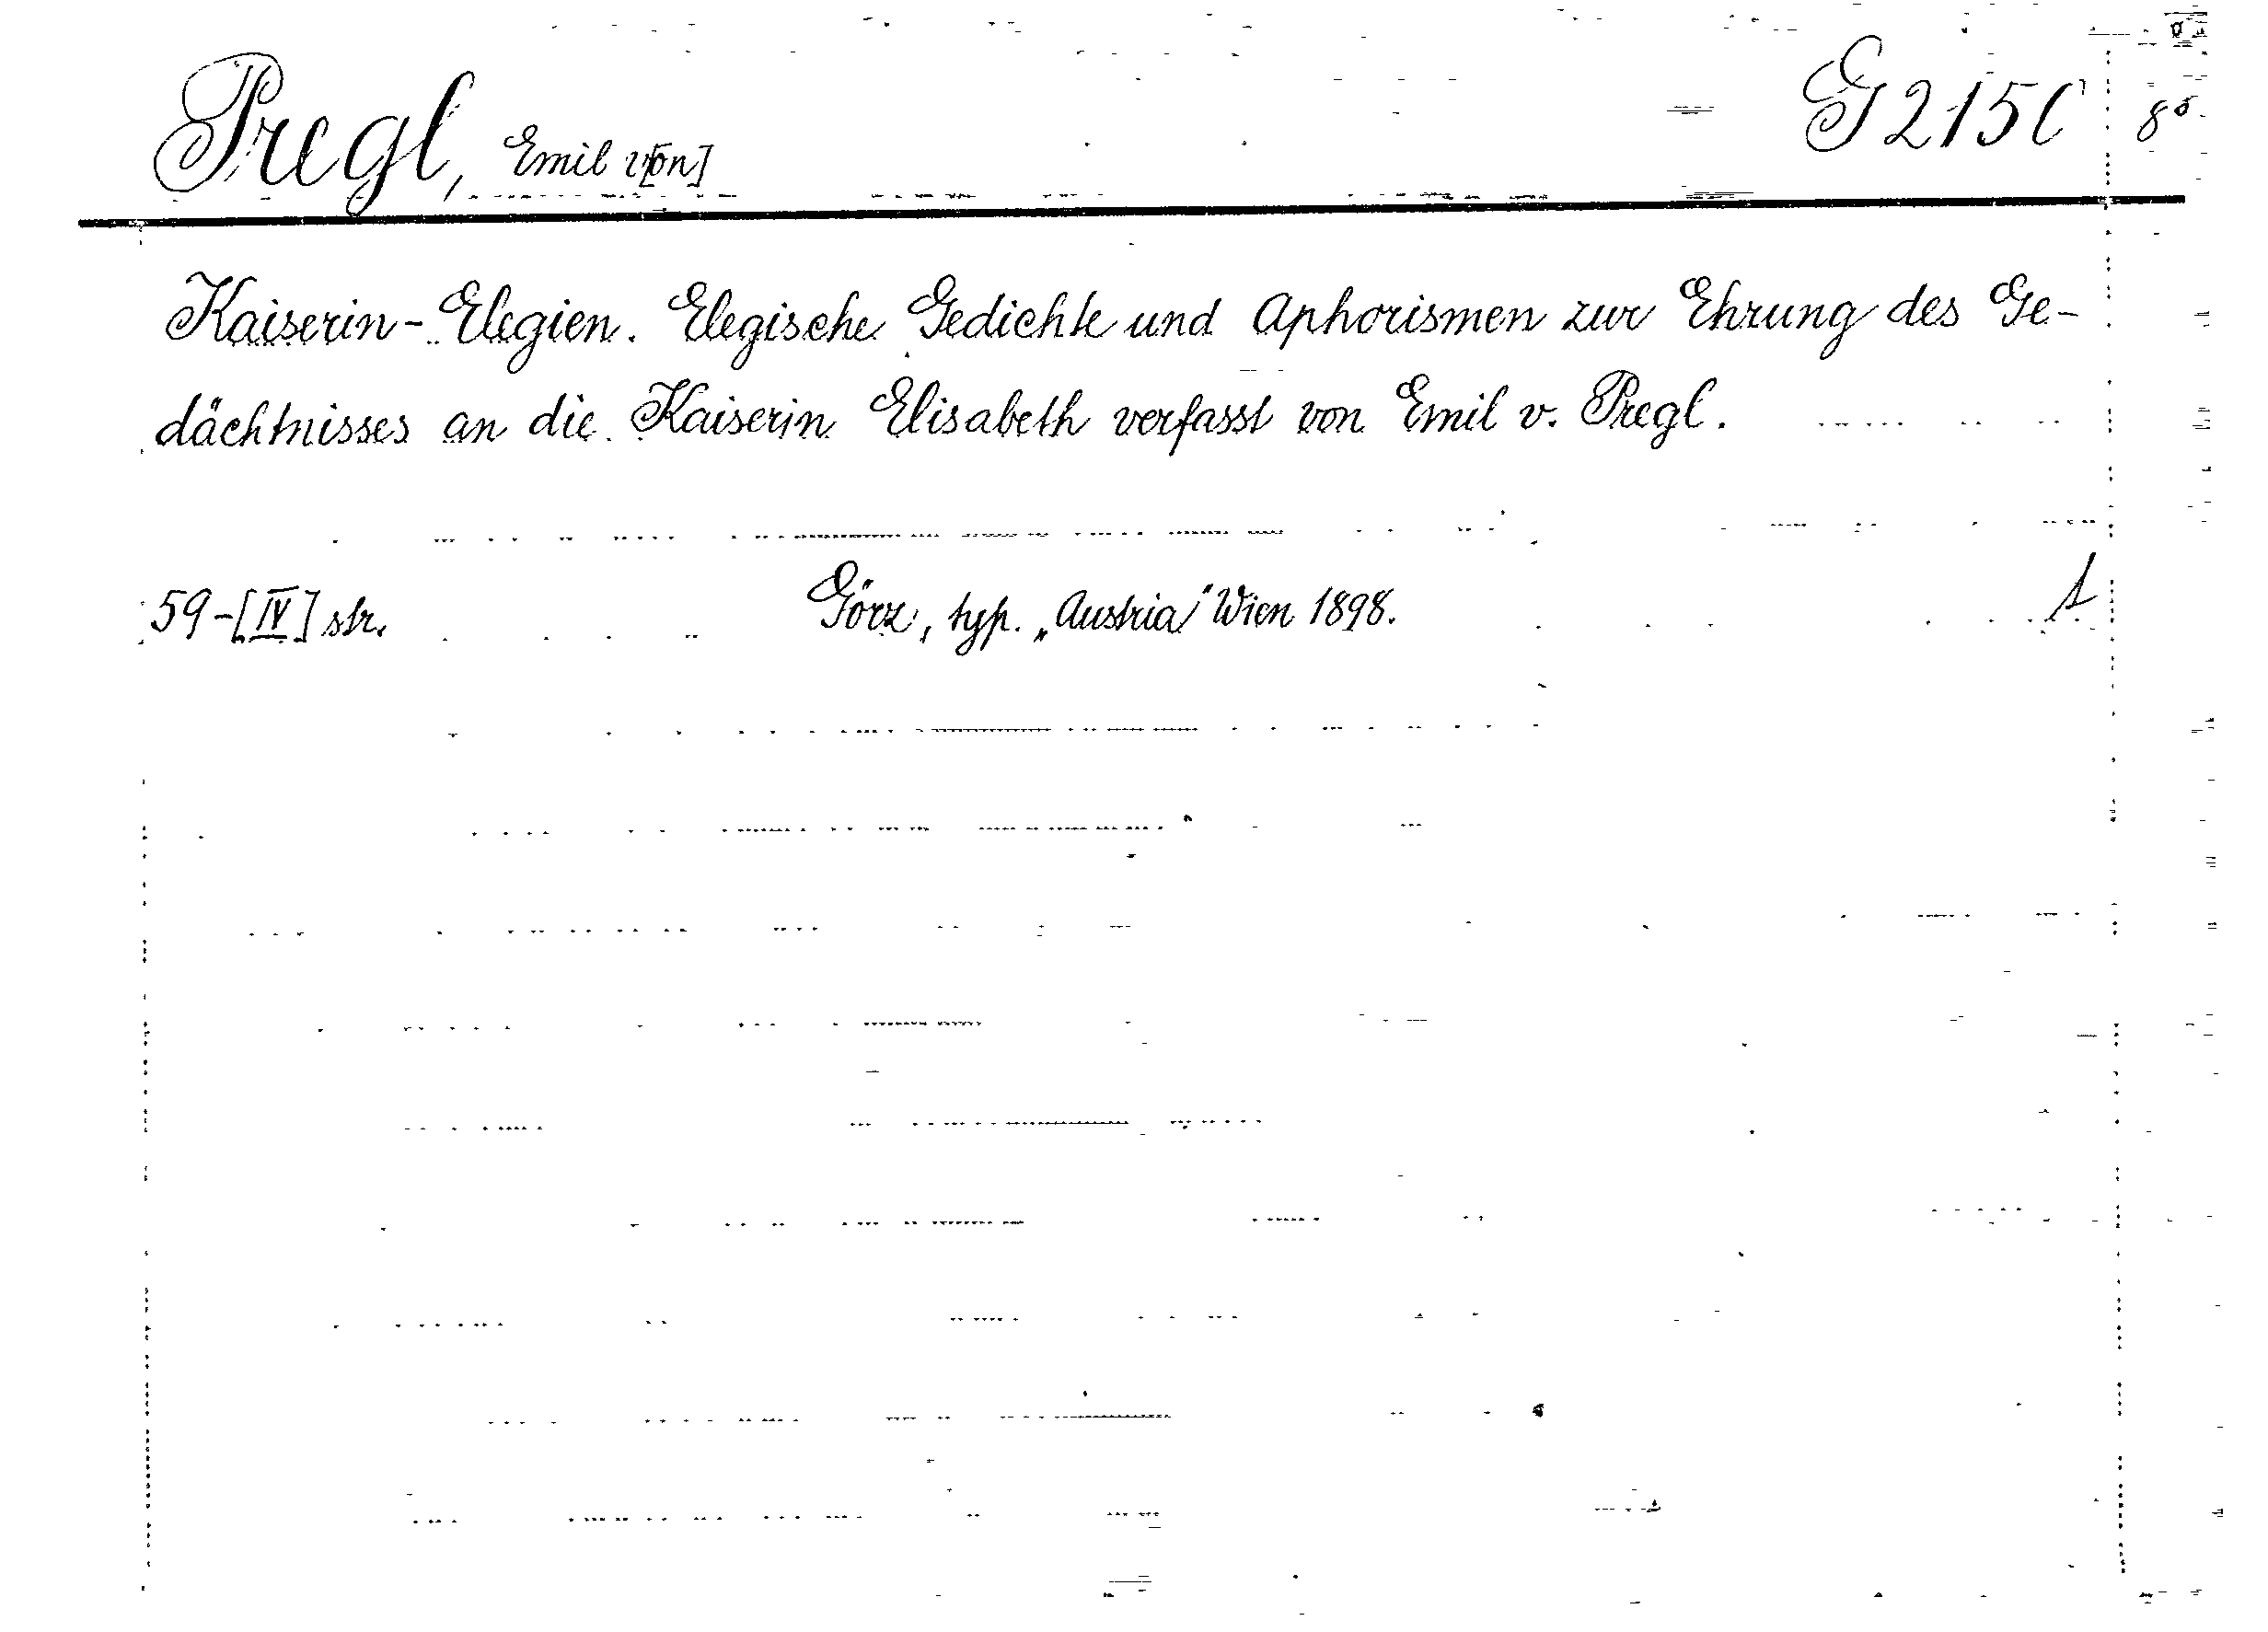 Pregl, Emil v[on] G 2150 8°
Kaiserin-Elegien. Elegische Gedichte und Aphorismen zur Ehrung des Ge-
dächtnisses an die Kaiserin Elisabeth verfasst von Emil v. Pregl.
59-[IV] str. Görz, typ. „Austria" Wien 1898. 1